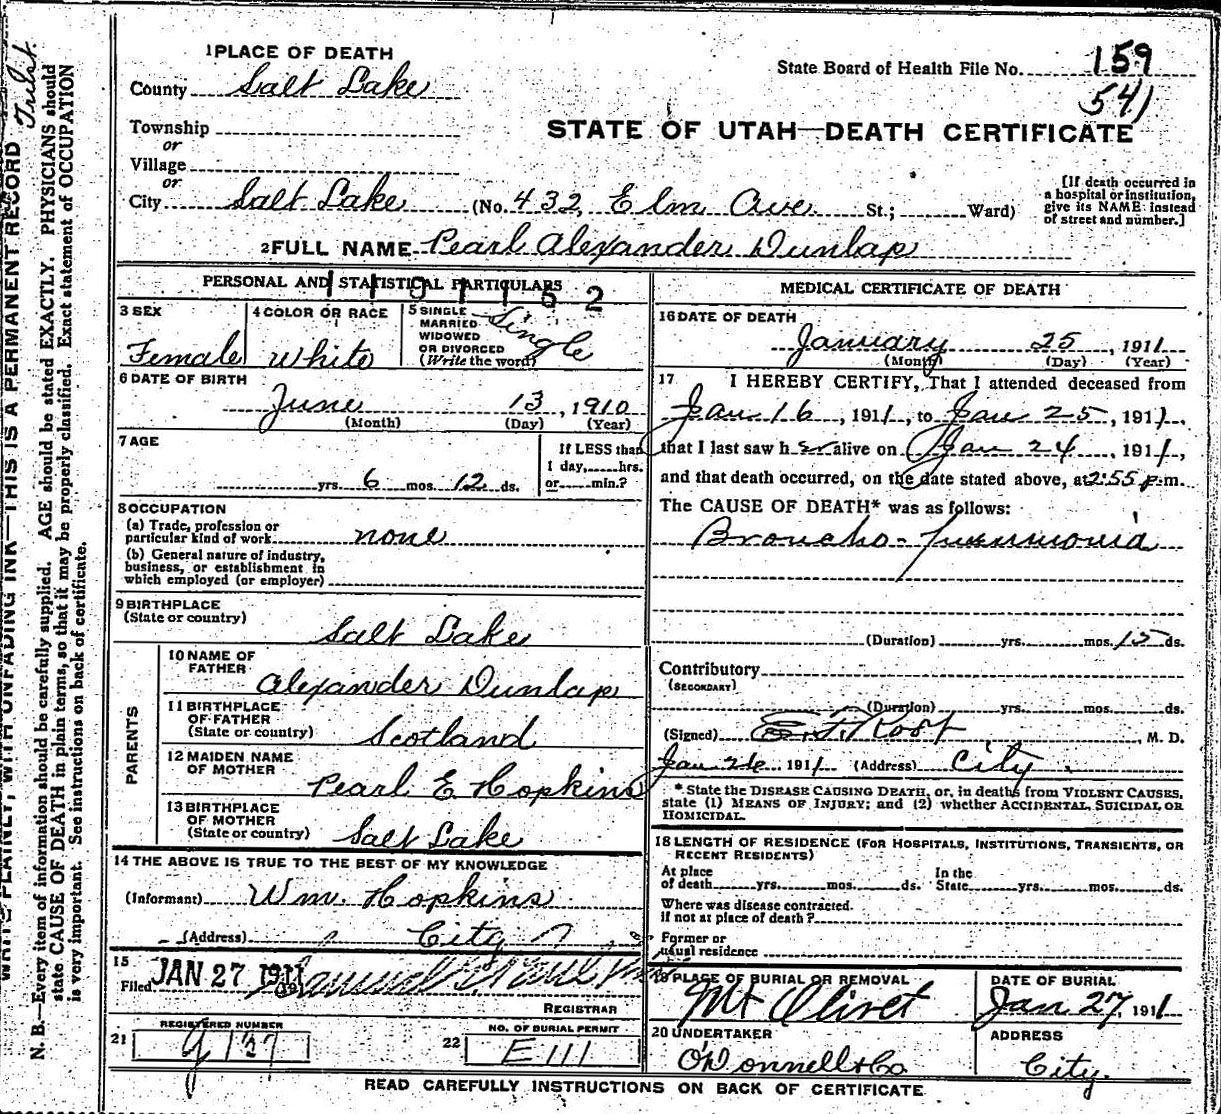 1 PLACE OF DEATH
County Salt Lake
State Board of Health File No. 159
541
Township
or
Village
or
STATE OF UTAH—DEATH CERTIFICATE
City Salt Lake (No. 432 Elm Ave St.; Ward)
[If death occurred in
a hospital or institution,
give its NAME instead
of street and number.]
2 FULL NAME Pearl Alexander Dunlap
PERSONAL AND STATISTICAL PARTICULARS
3 SEX
Female
4 COLOR OR RACE
White
5 SINGLE
MARRIED
WIDOWED
OR DIVORCED
(Write the word)
Single
6 DATE OF BIRTH
June 13, 1910
(Month) (Day) (Year)
7 AGE
yrs. 6 mos. 12 ds.
If LESS than
1 day, hrs.
or min.?
8 OCCUPATION
(a) Trade, profession or
particular kind of work none
(b) General nature of industry,
business, or establishment in
which employed (or employer)
9 BIRTHPLACE
(State or country)
Salt Lake
PARENTS
10 NAME OF
FATHER
Alexander Dunlap
11 BIRTHPLACE
OF FATHER
(State or country)
Scotland
12 MAIDEN NAME
OF MOTHER
Pearl E Hopkins
13 BIRTHPLACE
OF MOTHER
(State or country)
Salt Lake
14 THE ABOVE IS TRUE TO THE BEST OF MY KNOWLEDGE
(Informant) Wm. Hopkins
(Address) City
15
Filed JAN 27 1911
REGISTRAR
21
REGISTERED NUMBER
137
22
NO. OF BURIAL PERMIT
E 111
MEDICAL CERTIFICATE OF DEATH
16 DATE OF DEATH
January 25, 1911
(Month) (Day) (Year)
17 I HEREBY CERTIFY, That I attended deceased from
Jan 16, 1911, to Jan 25, 1911.
that I last saw her alive on Jan 24 1911,
and that death occurred, on the date stated above, at 2:55 p.m.
The CAUSE OF DEATH* was as follows:
Broncho-Pneumonia
(Duration) yrs. mos. 15 ds.
Contributory
(SECONDARY)
(Duration) yrs. mos. ds.
(Signed) E. F. Root, M. D.
Jan 26 1911 (Address) City.
* State the DISEASE CAUSING DEATH, or, in deaths from VIOLENT CAUSES,
state (1) MEANS OF INJURY; and (2) whether ACCIDENTAL, SUICIDAL OR
HOMICIDAL.
18 LENGTH OF RESIDENCE (FOR HOSPITALS, INSTITUTIONS, TRANSIENTS, OR
RECENT RESIDENTS)
At place
of death yrs. mos. ds.
In the
State yrs. mos. ds.
Where was disease contracted.
if not at place of death?
Former or
usual residence
19 PLACE OF BURIAL OR REMOVAL
Mt Olivet
DATE OF BURIAL
Jan 27, 1911
20 UNDERTAKER
O'Donnell & Co
ADDRESS
City.
READ CAREFULLY INSTRUCTIONS ON BACK OF CERTIFICATE
WRITE PLAINLY, WITH UNFADING INK—THIS IS A PERMANENT RECORD
N. B.—Every item of information should be carefully supplied. AGE should be stated EXACTLY. PHYSICIANS should
state CAUSE OF DEATH in plain terms, so that it may be properly classified. Exact statement of OCCUPATION
is very important. See instructions on back of certificate.